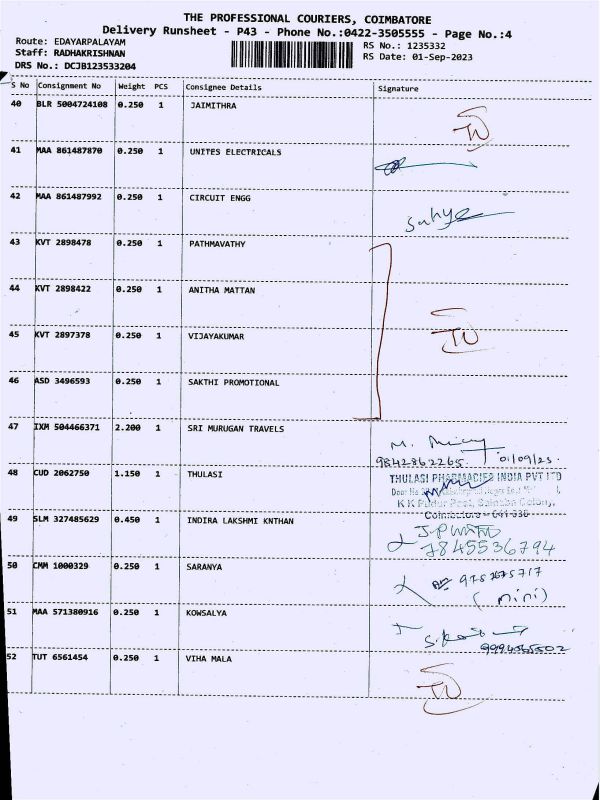 THE PROFESSIONAL COURIERS, COIMBATORE
Delivery Runsheet - P43 - Phone No.:0422-3505555 - Page No.:4
Route: EDAYARPALAYAM
RS No.: 1235332
Staff: RADHAKRISHNAN
RS Date: 01-Sep-2023
DRS No.: DCJB123533204
S No Consignment No Weight PCS Consignee Details Signature
40 BLR 5004724108 0.250 1 JAIMITHRA
41 MAA 861487870 0.250 1 UNITES ELECTRICALS
42 MAA 861487992 0.250 1 CIRCUIT ENGG
43 KVT 2898478 0.250 1 PATHMAVATHY
44 KVT 2898422 0.250 1 ANITHA MATTAN
45 KVT 2897378 0.250 1 VIJAYAKUMAR
46 ASD 3496593 0.250 1 SAKTHI PROMOTIONAL
47 IXM 504466371 2.200 1 SRI MURUGAN TRAVELS
9842862265 01/09/23
48 CUD 2062750 1.150 1 THULASI
THULASI PHARMACIES INDIA PVT LTD
Door No
K K Pudur Post, Saibaba Colony,
Coimbatore - 641 038
49 SLM 327485629 0.450 1 INDIRA LAKSHMI KNTHAN
7845536794
50 CMM 1000329 0.250 1 SARANYA
(mini)
51 MAA 571380916 0.250 1 KOWSALYA
52 TUT 6561454 0.250 1 VIHA MALA